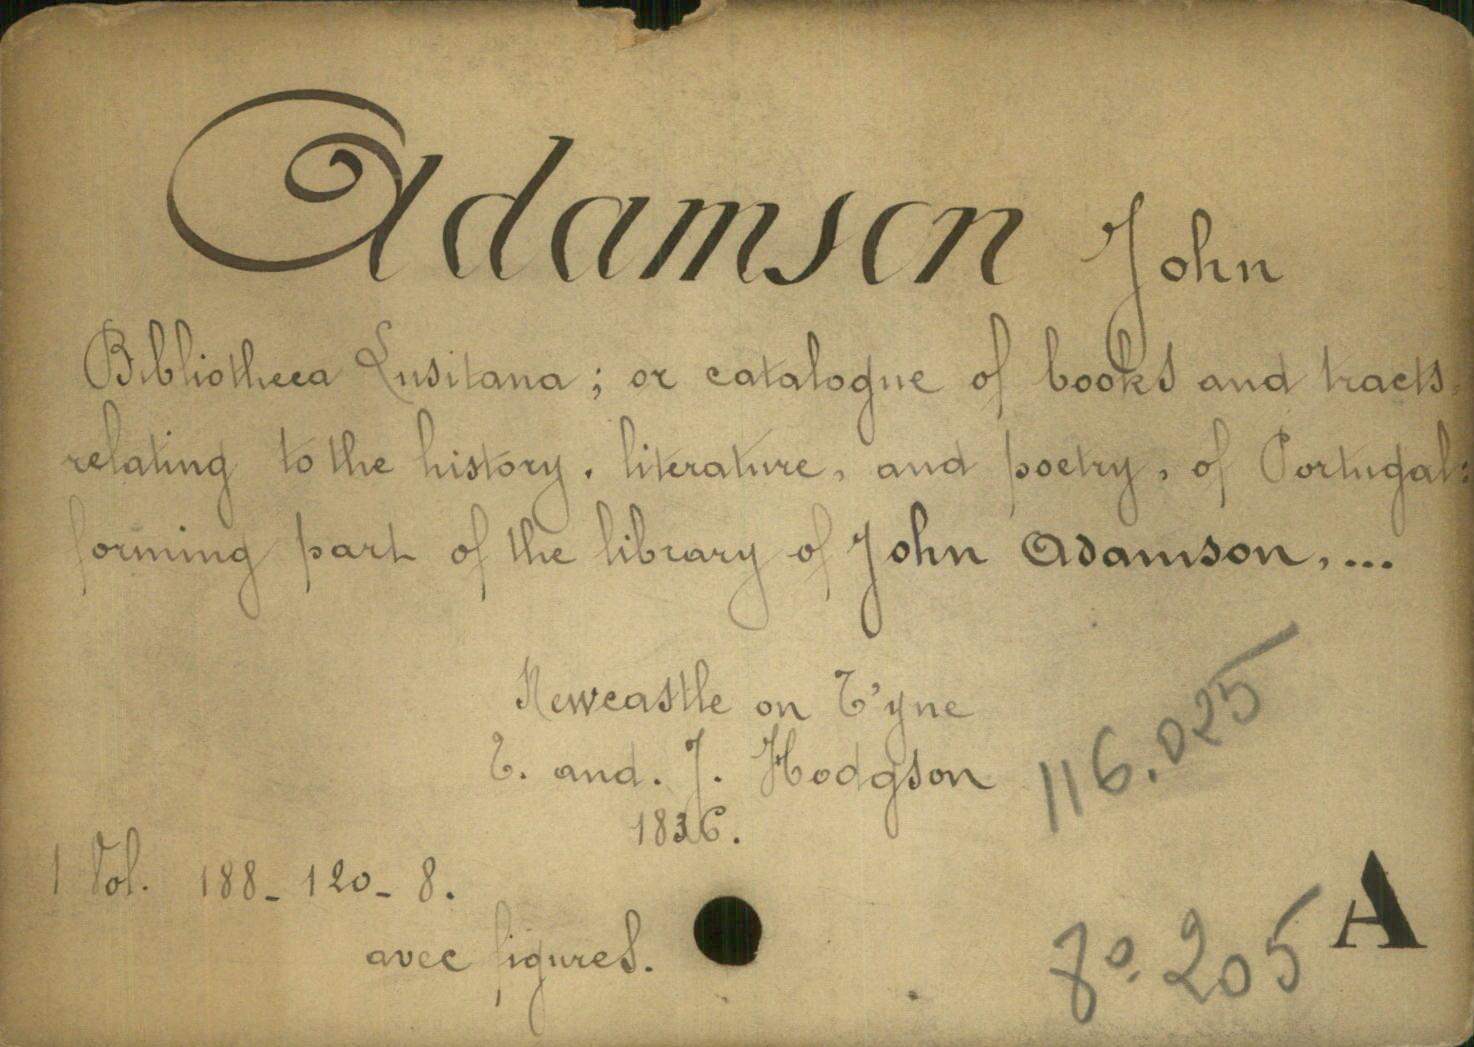 Adamson John
Bibliotheca Lusitana; or catalogue of books and tracts,
relating to the history, literature, and poetry, of Portugal:
forming part of the library of John Adamson, ...
Newcastle on T'yne
T. and. J. Hodgson
1836.
116.025
1 Vol. 188_ 120_ 8.
avec figures.
8º. 205 A